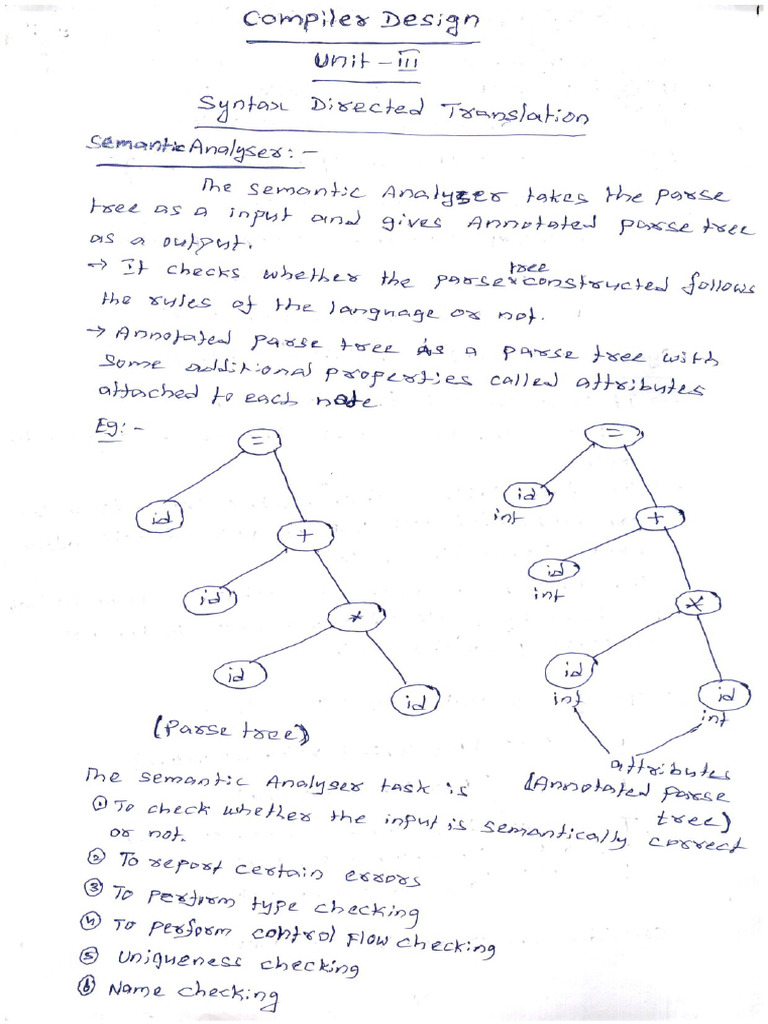 1
Compiler Design
Unit - III
Syntax Directed Translation
Semantic Analyser:-
The semantic Analyser takes the parse
tree as a input and gives Annotated parse tree
as a output.
→ It checks whether the parse tree constructed follows
the rules of the language or not.
→ Annotated parse tree is a parse tree with
some additional properties called attributes
attached to each node.
Eg:-
=
id
+
id
*
id
id
(Parse tree)
=
id
int
+
id
int
*
id
int
id
int
attributes
(Annotated parse
tree)
The semantic Analyser task is
① To check whether the input is semantically correct
or not.
② To report certain errors
③ To perform type checking
④ To perform control flow checking
⑤ Uniqueness checking
⑥ Name checking